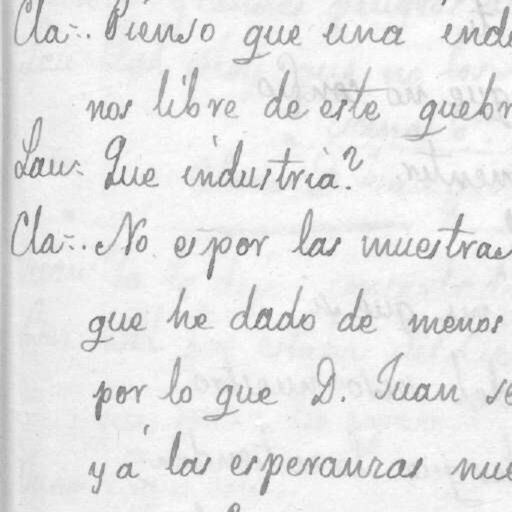 Cla=. Pienso que una ind
nos libre de este quebr
Lau: Que industria?
Cla=. No es por las muestras
que he dado de menos
por lo que D. Juan se
y á las esperanzas nue